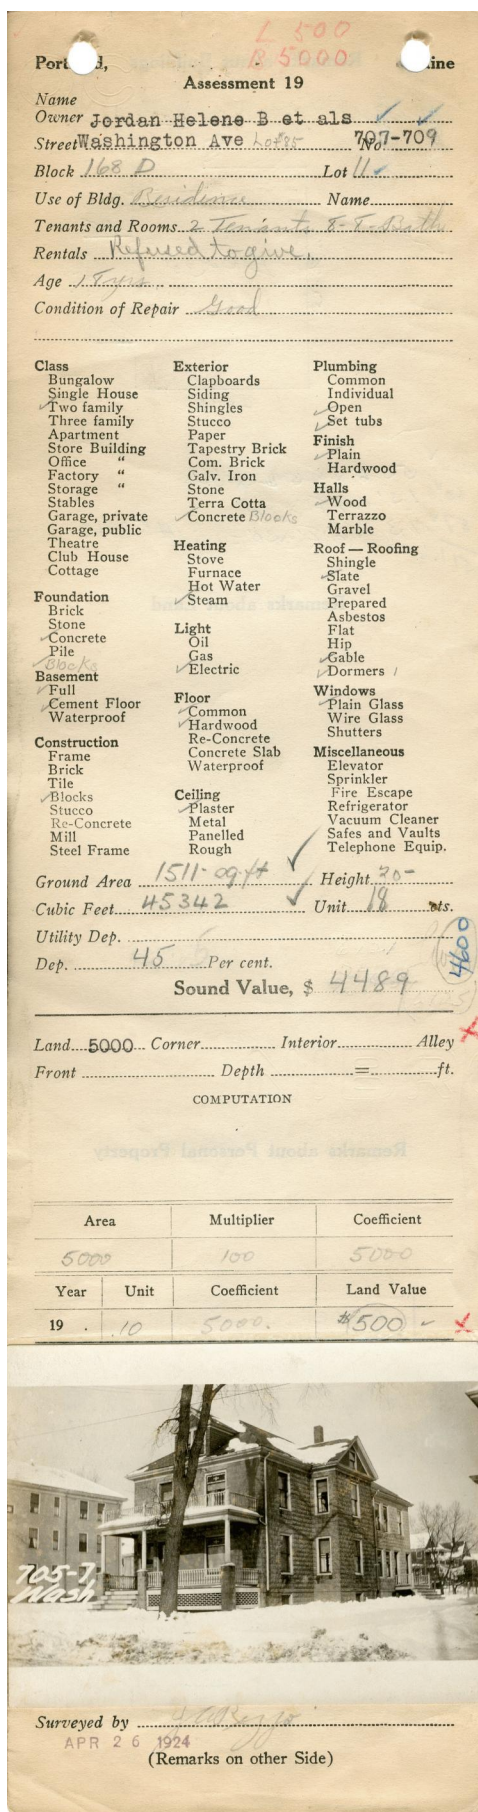 L 500
B 5000
Portland, Maine
Assessment 19
Name
Owner Jordan Helene B et als
Street Washington Ave Lot 85 No 707-709
Block 168 D Lot 11
Use of Bldg. Residence Name
Tenants and Rooms 2 Tenants 8-7-Bath
Rentals Refused to give.
Age yrs.
Condition of Repair Good
Class
Bungalow
Single House
Two family
Three family
Apartment
Store Building
Office "
Factory "
Storage "
Stables
Garage, private
Garage, public
Theatre
Club House
Cottage
Foundation
Brick
Stone
Concrete
Pile
Blocks
Basement
Full
Cement Floor
Waterproof
Construction
Frame
Brick
Tile
Blocks
Stucco
Re-Concrete
Mill
Steel Frame
Exterior
Clapboards
Siding
Shingles
Stucco
Paper
Tapestry Brick
Com. Brick
Galv. Iron
Stone
Terra Cotta
Concrete Blocks
Heating
Stove
Furnace
Hot Water
Steam
Light
Oil
Gas
Electric
Floor
Common
Hardwood
Re-Concrete
Concrete Slab
Waterproof
Ceiling
Plaster
Metal
Panelled
Rough
Plumbing
Common
Individual
Open
Set tubs
Finish
Plain
Hardwood
Halls
Wood
Terrazzo
Marble
Roof — Roofing
Shingle
Slate
Gravel
Prepared
Asbestos
Flat
Hip
Gable
Dormers 1
Windows
Plain Glass
Wire Glass
Shutters
Miscellaneous
Elevator
Sprinkler
Fire Escape
Refrigerator
Vacuum Cleaner
Safes and Vaults
Telephone Equip.
Ground Area 1511 sq ft Height 30-
Cubic Feet 45342 Unit 18 cts.
Utility Dep.
Dep. 45 Per cent.
4600
Sound Value, $ 4489
Land 5000 Corner Interior Alley
Front Depth = ft.
COMPUTATION
Area Multiplier Coefficient
5000 100 5000
Year Unit Coefficient Land Value
19 .10 5000. $500
705-7
Wash
Surveyed by
APR 26 1924
(Remarks on other Side)